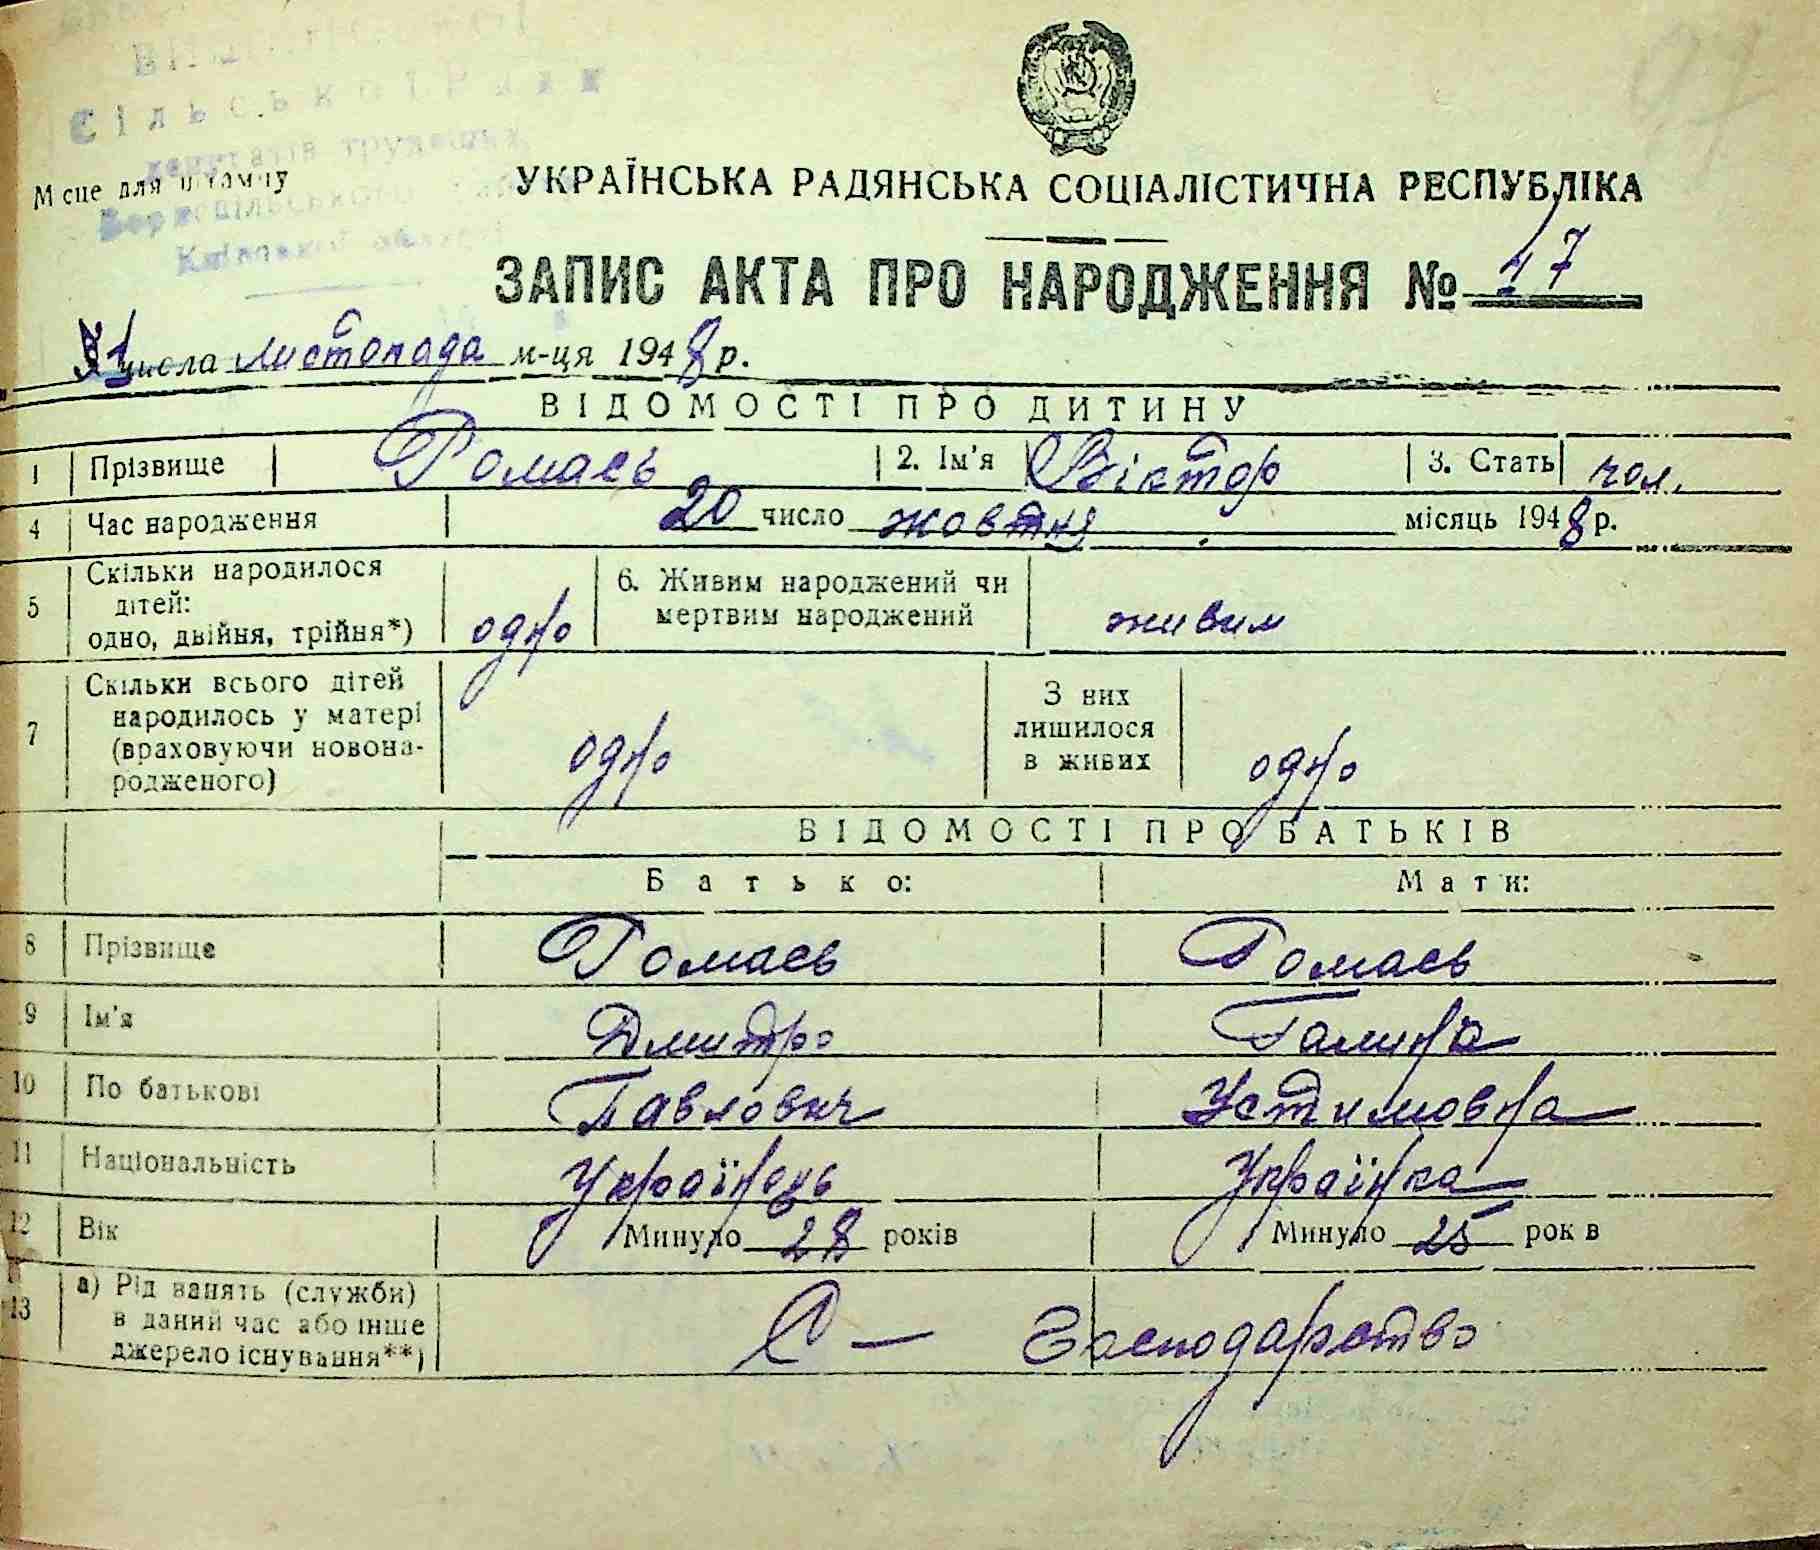 Сільської Ради
депутатів трудящих
Бориспільського
Київської області
Місце для штампу
УКРАЇНСЬКА РАДЯНСЬКА СОЦІАЛІСТИЧНА РЕСПУБЛІКА
ЗАПИС АКТА ПРО НАРОДЖЕННЯ № 17
1 числа листопада м-ця 1948 р.
ВІДОМОСТІ ПРО ДИТИНУ
1 Прізвище Ромась 2. Ім'я Віктор 3. Стать чол.
4 Час народження 20 число жовтня місяць 1948 р.
5 Скільки народилося дітей: одно, двійня, трійня*) одно 6. Живим народжений чи мертвим народжений живим
7 Скільки всього дітей народилось у матері (враховуючи новонародженого) одно З них лишилося в живих одно
ВІДОМОСТІ ПРО БАТЬКІВ
Батько: Мати:
8 Прізвище Ромась Ромась
9 Ім'я Дмитро Галина
10 По батькові Павлович Устимовна
11 Національність Українець Українка
12 Вік Минуло 28 років Минуло 25 рок в
13 а) Рід занять (служби) в даний час або інше джерело існування**) С — Господарство